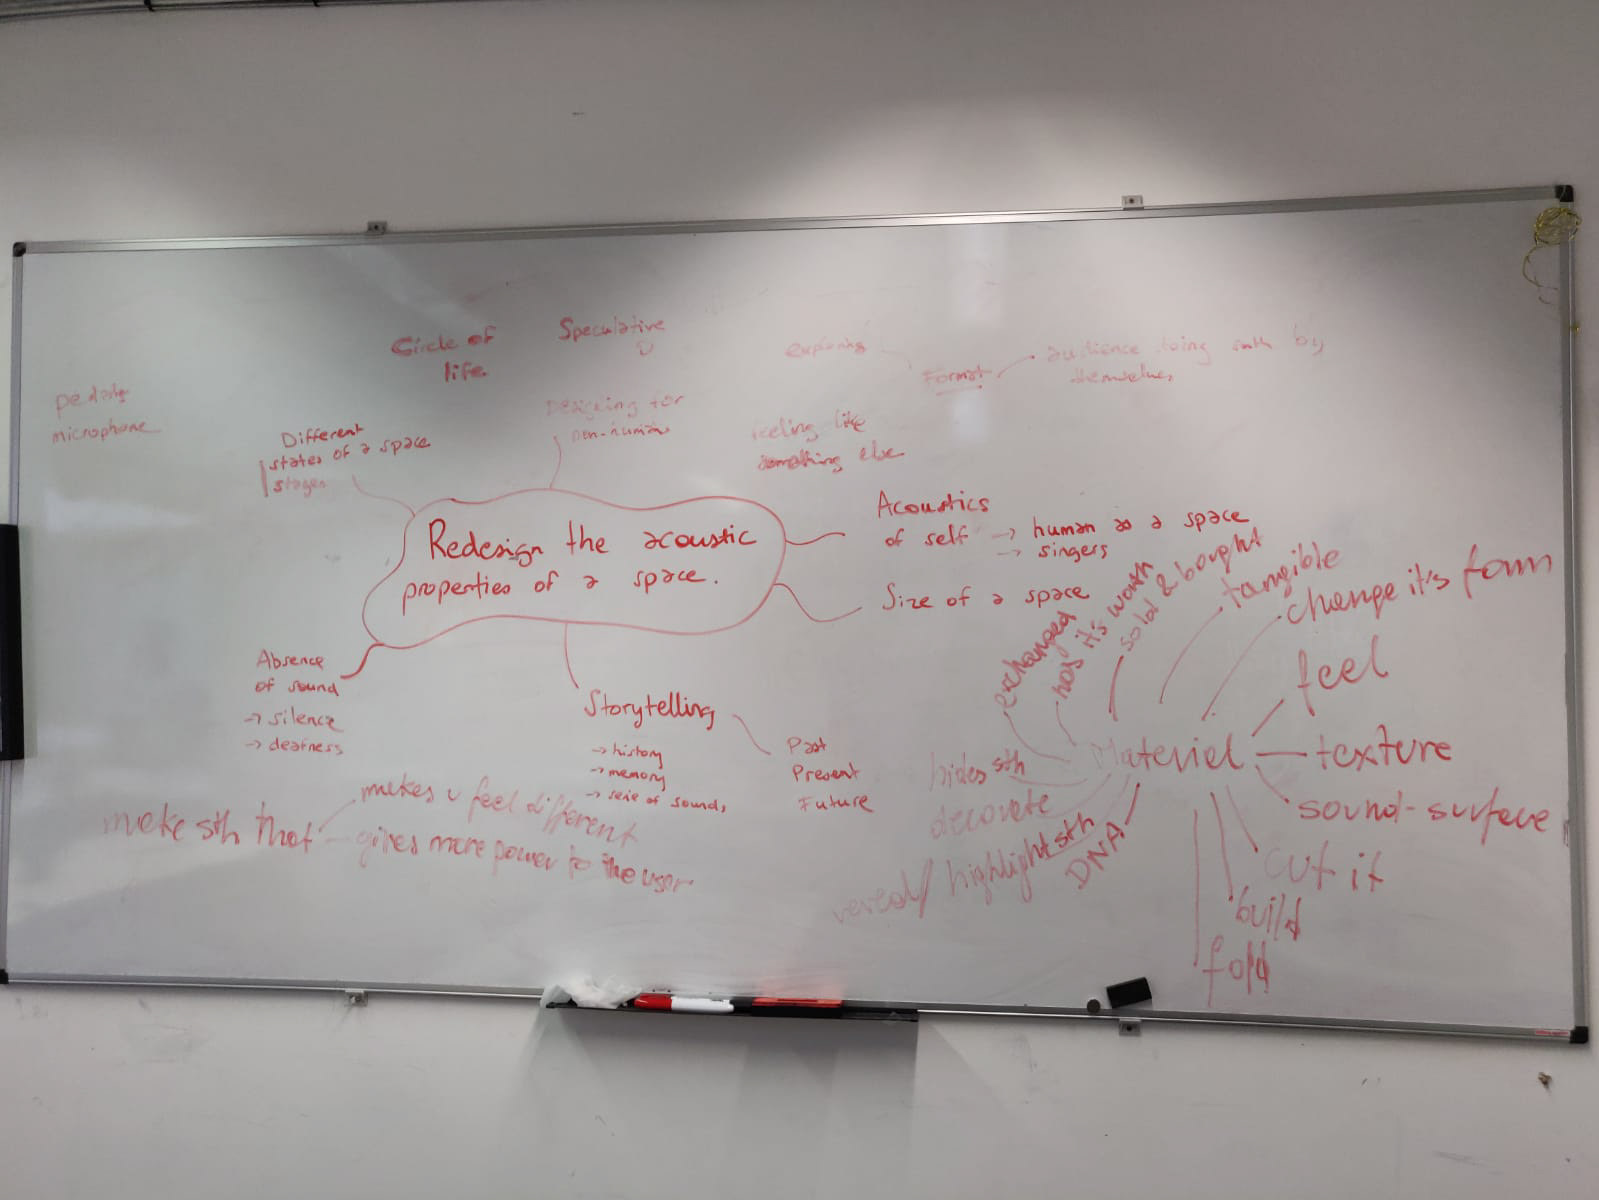 Circle of
life
Speculative
exploring
Format
audience doing smth by
themselves
pedals
microphone
Different
states of a space
stages
Designing for
non-humans
feeling like
something else
Redesign the acoustic
properties of a space.
Acoustics
of self → human as a space
→ singers
Size of a space
Absence
of sound
→ silence
→ deafness
Storytelling
→ history
→ memory
→ serie of sounds
Past
Present
Future
make sth that
makes u feel different
gives more power to the user
Material
exchanged
has it's worth
sold & bought
tangible
change it's form
feel
texture
sound-surface
cut it
build
fold
DNA
reveal/ highlight sth
decorate
hides sth